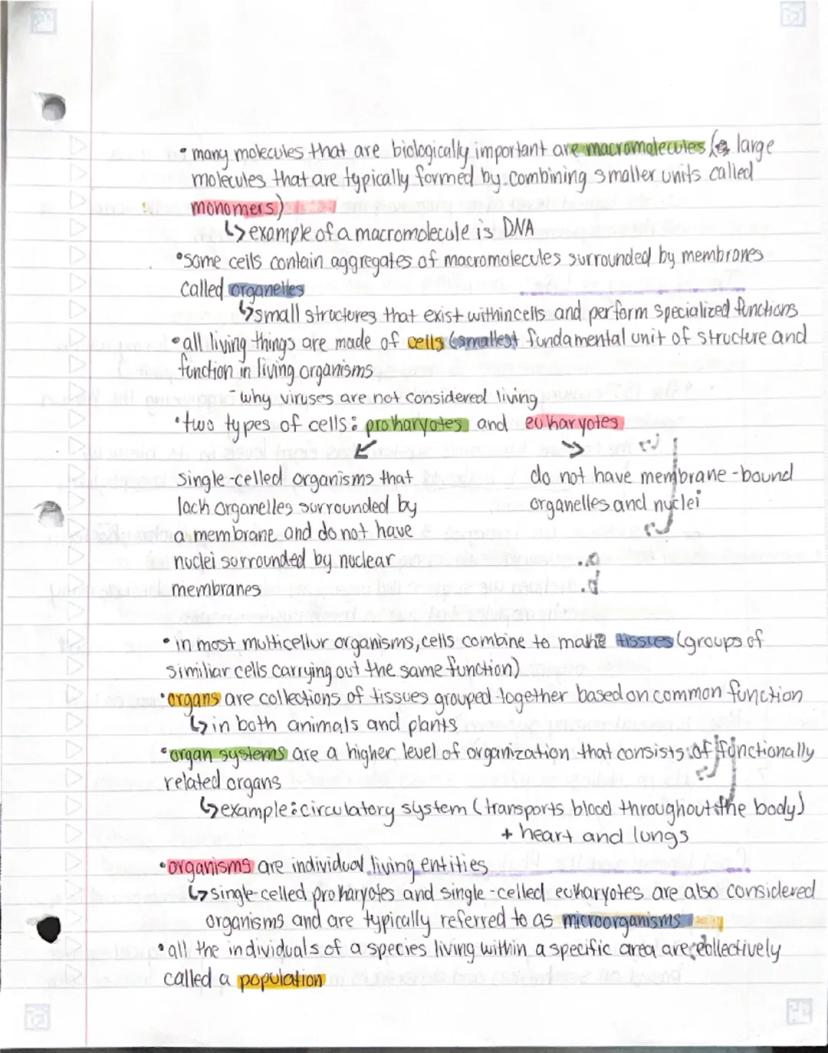 • many molecules that are biologically important are macromolecules (large
molecules that are typically formed by combining smaller units called
monomers)
↳ example of a macromolecule is DNA
• some cells contain aggregates of macromolecules surrounded by membranes
called organelles
↳ small structures that exist within cells and perform specialized functions
• all living things are made of cells (smallest fundamental unit of structure and
function in living organisms
- why viruses are not considered living
• two types of cells: prokaryotes and eukaryotes
single-celled organisms that
lack organelles surrounded by
a membrane and do not have
nuclei surrounded by nuclear
membranes
do not have membrane-bound
organelles and nuclei
• in most multicellur organisms, cells combine to make tissues (groups of
similiar cells carrying out the same function)
• organs are collections of tissues grouped together based on common function
↳ in both animals and plants
• organ systems are a higher level of organization that consists of functionally
related organs
↳ example: circulatory system (transports blood throughout the body)
+ heart and lungs
• organisms are individual living entities
↳ single-celled prokaryotes and single-celled eukaryotes are also considered
organisms and are typically referred to as microorganisms
• all the individuals of a species living within a specific area are collectively
called a population